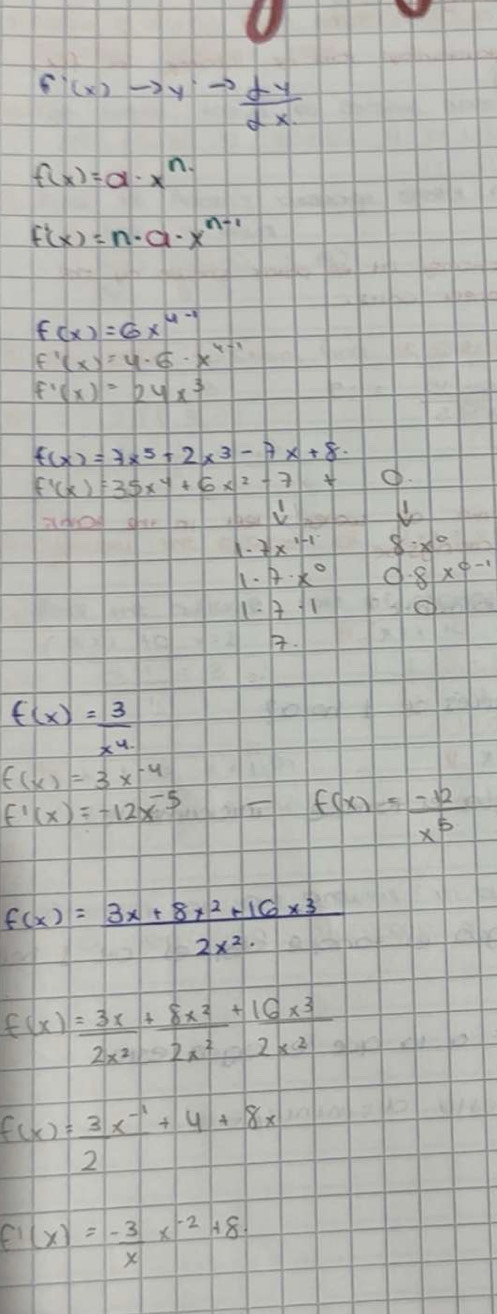 f'(x) → y' → dy/dx.
f(x) = a · x^n.
f'(x) = n · a · x^n-1
f(x) = 6x^4-1
f'(x) = 4 · 6 · x^4-1
f'(x) = 24x^3
f(x) = 7x^5 + 2x^3 - 7x + 8.
f'(x) = 35x^4 + 6x^2 - 7 + 0.
↓ ↓
1 · 7x^1-1 8 · x^0
1 · 7 · x^0 0 · 8x^0-1
1 · 7 · 1 0
7.
f(x) = 3/x^4.
f(x) = 3x^-4
f'(x) = -12x^-5 = f(x) = -12/x^5
f(x) = 3x + 8x^2 + 16x^3/2x^2.
f(x) = 3x/2x^2 + 8x^2/2x^2 + 16x^3/2x^2
f(x) = 3/2 x^-1 + 4 + 8x
f'(x) = -3/x x^-2 + 8.